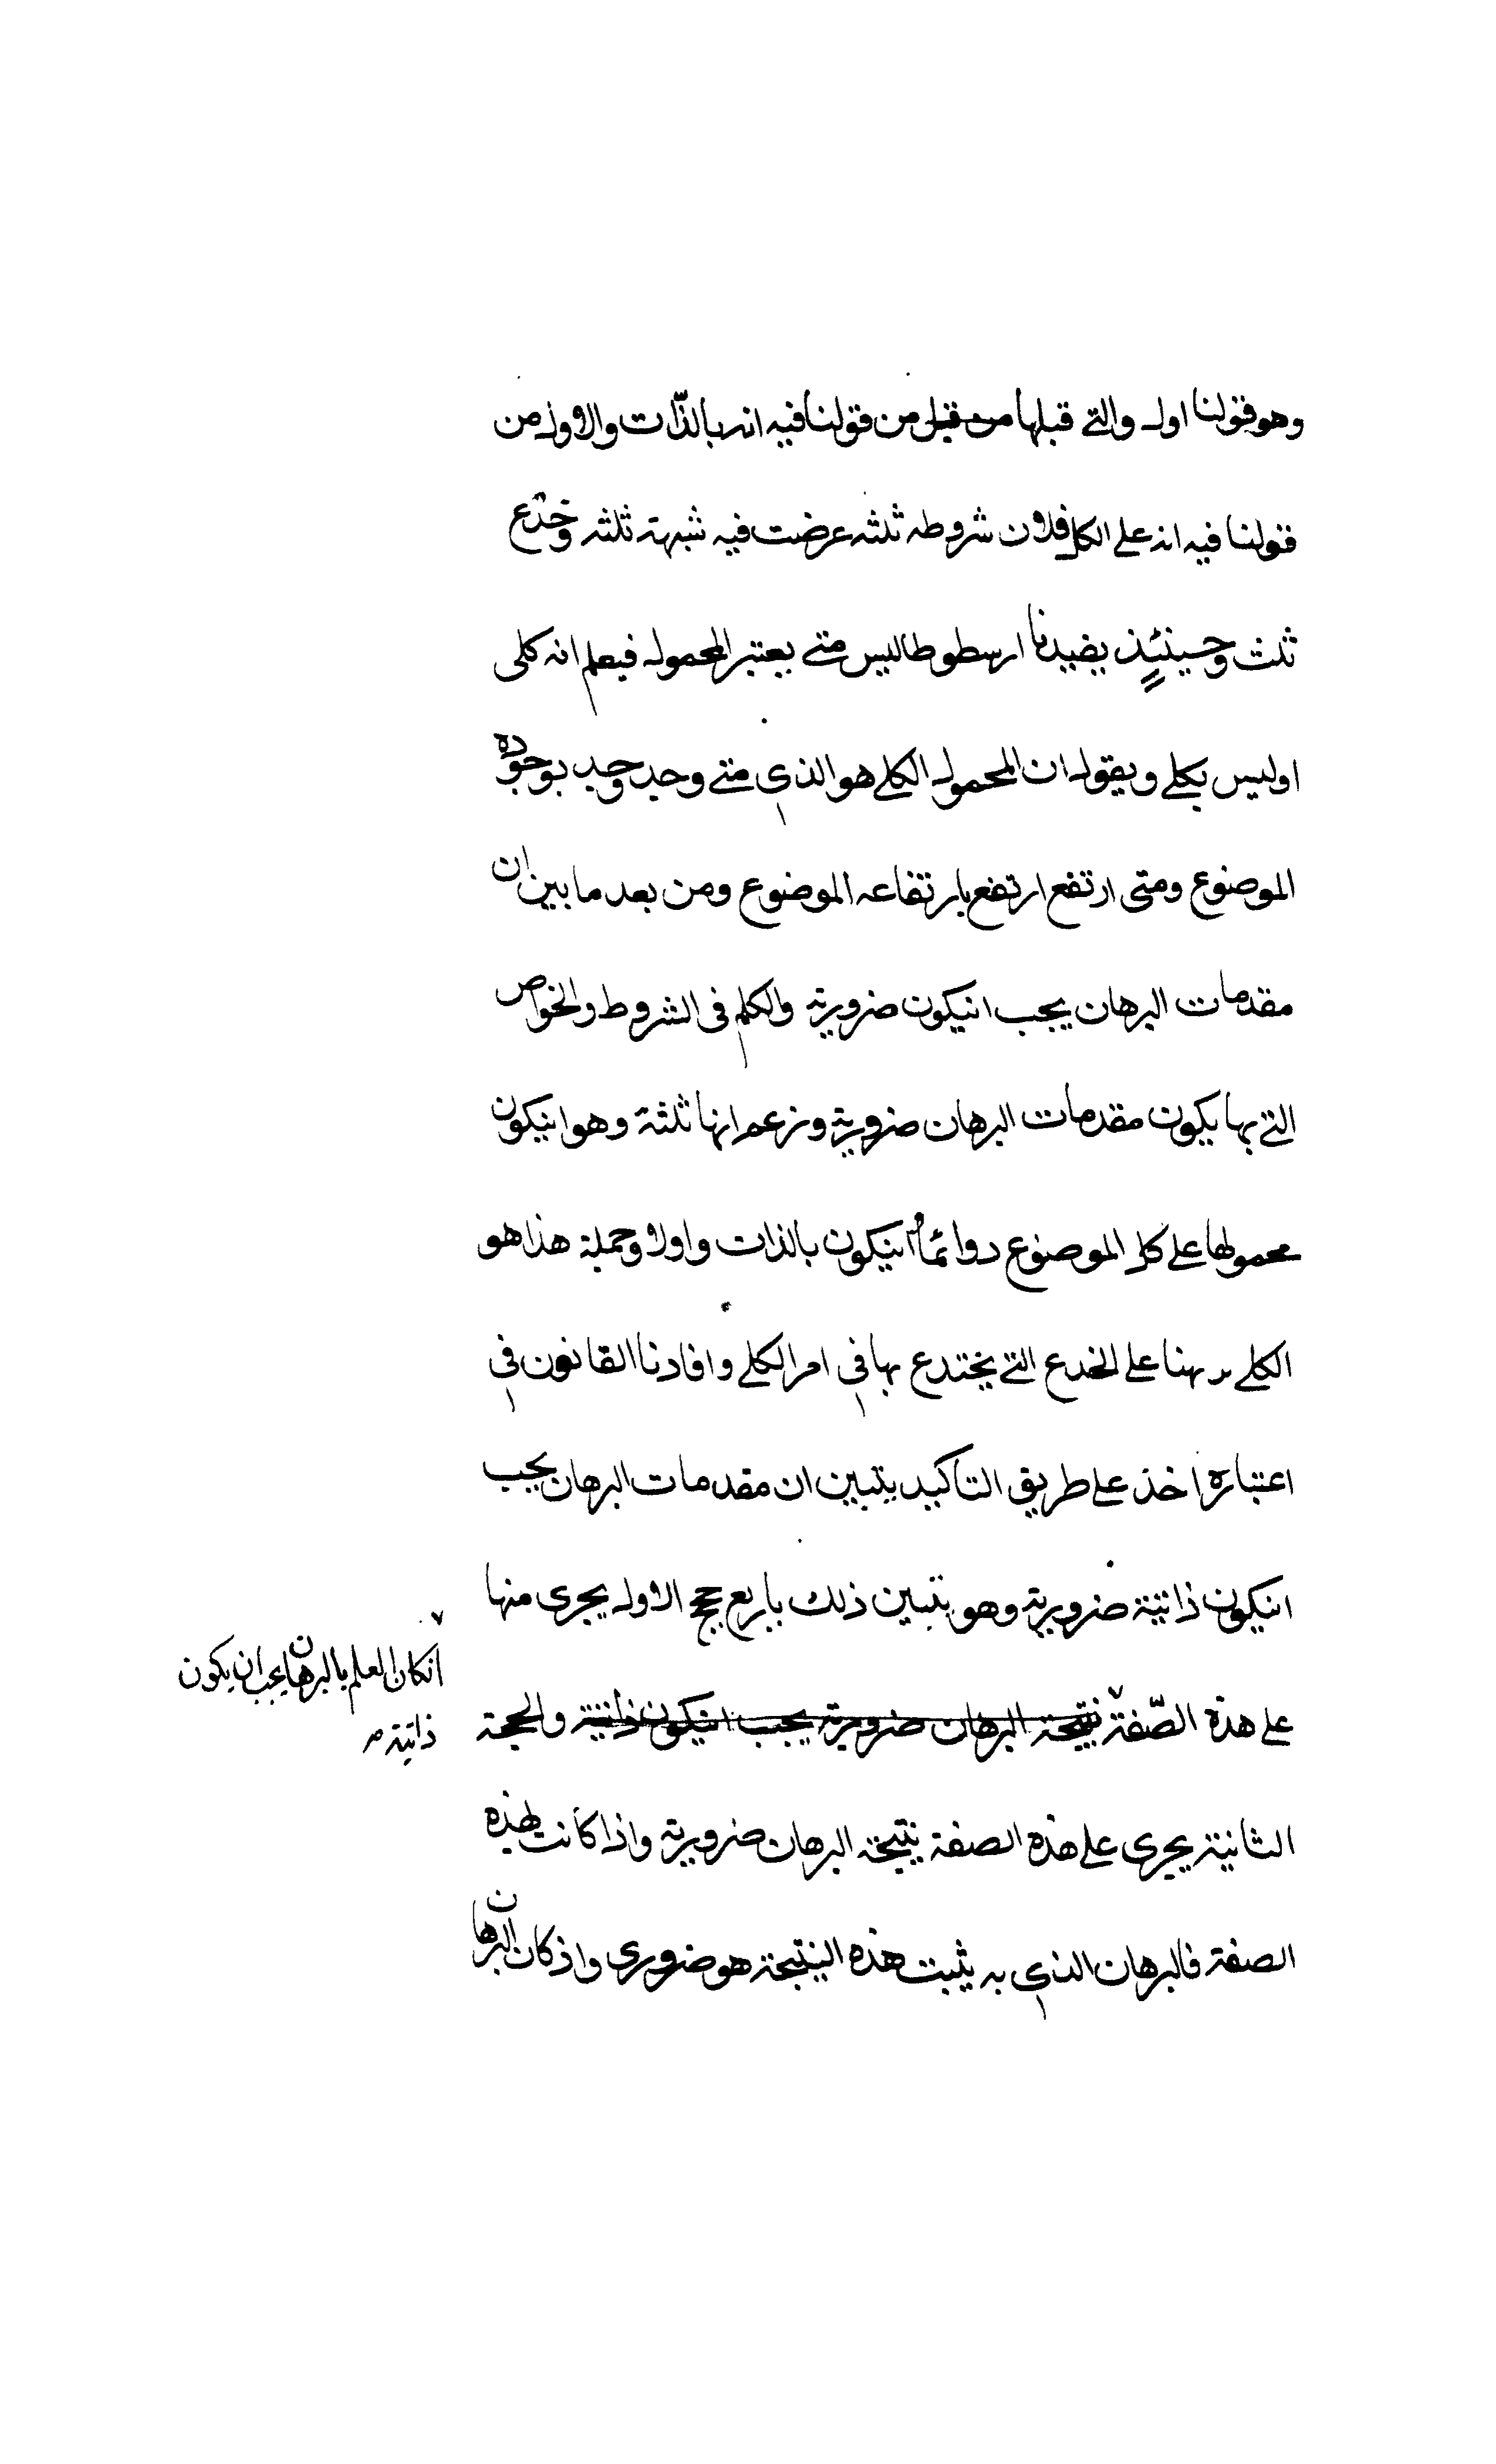 وهو قولنا اول والتي قبلها من قبل من قولنا فيه انه بالذّات والاول من
قولنا فيه انه على الكل فلان شروطه ثلثه عرضت فيه شبهة ثلثه وخدع
ثلث وحينئذٍ يفيدنا ارسطوطاليس متى يعتبر المحمول فيعلم انه كلى
اوليس بكلي ويقول ان المحمول الكلي هو الذي متى وجد وجد بوجوده
الموضوع ومتى ارتفع ارتفع بارتفاعه الموضوع ومن بعد ما بين ان
مقدمات البرهان يجب انيكون ضرورية والكلم فى الشروط والخواص
التي بها يكون مقدمات البرهان ضرورية وزعم انها ثلثة وهو انيكون
محمولها على كل الموضوع دوائماً وانيكون بالذات واولا وجملة هذا هو
الكلي نبهنا على الخدع التي يختدع بها في امر الكلي وافادنا القانون في
اعتباره اخذ على طريق التاكيد يتبين ان مقدمات البرهان يجب
انيكون ذاتية ضرورية وهو يتبين ذلك باربع حجج الاول يجرى منها
على هذه الصّفة نتيجة البرهان ضرورية يجب انيكون ذاتية والحجة
انكان العلم بالبرهان يجب ان يكون
ذاتية صـ
الثانية يجرى على هذه الصفة نتيجة البرهان ضرورية واذا كانت بهذه
الصفة فالبرهان الذي به يثبت هذه النتيجة هو ضروري واذ كان البرهان